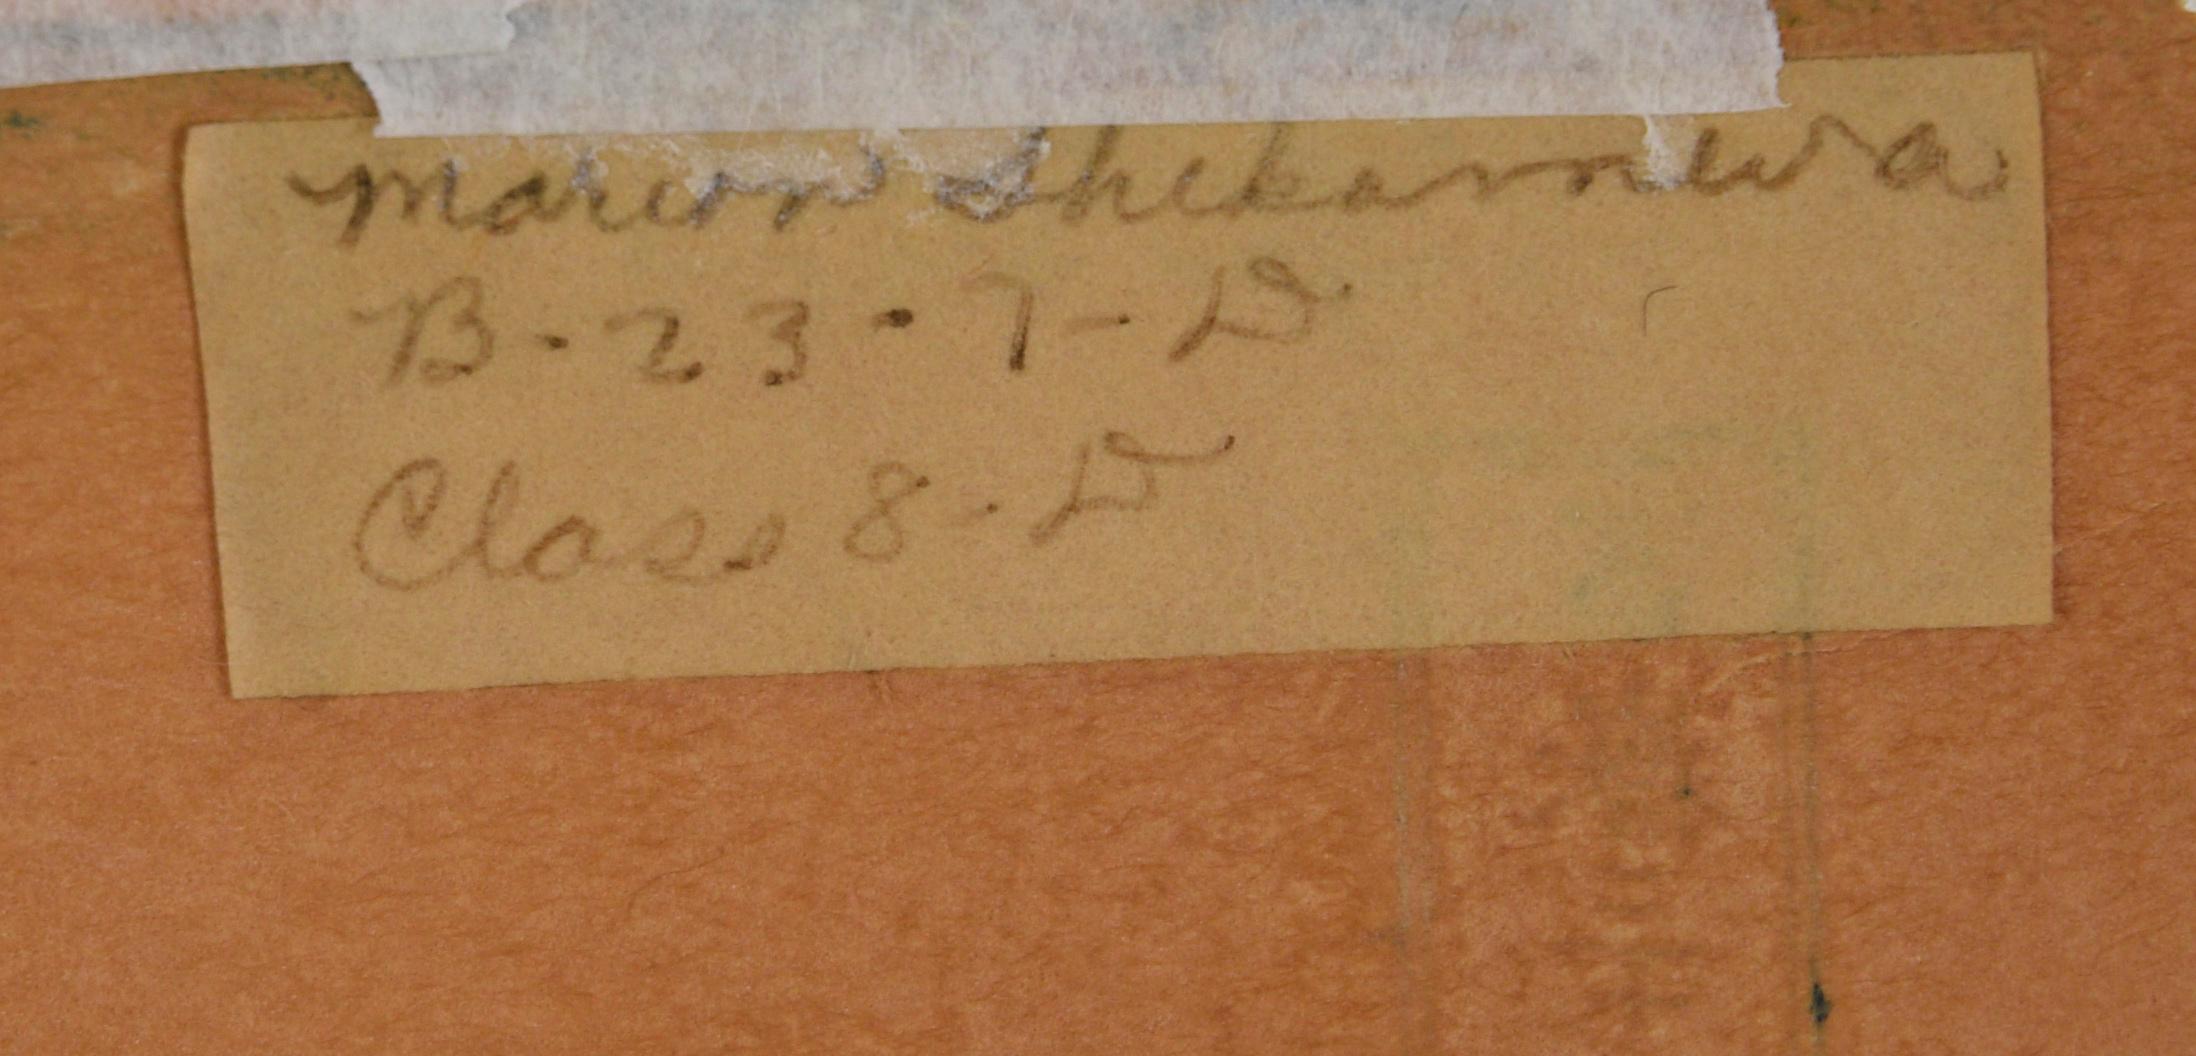 Marion Shekamewa
B-23-7-D
Class 8-D